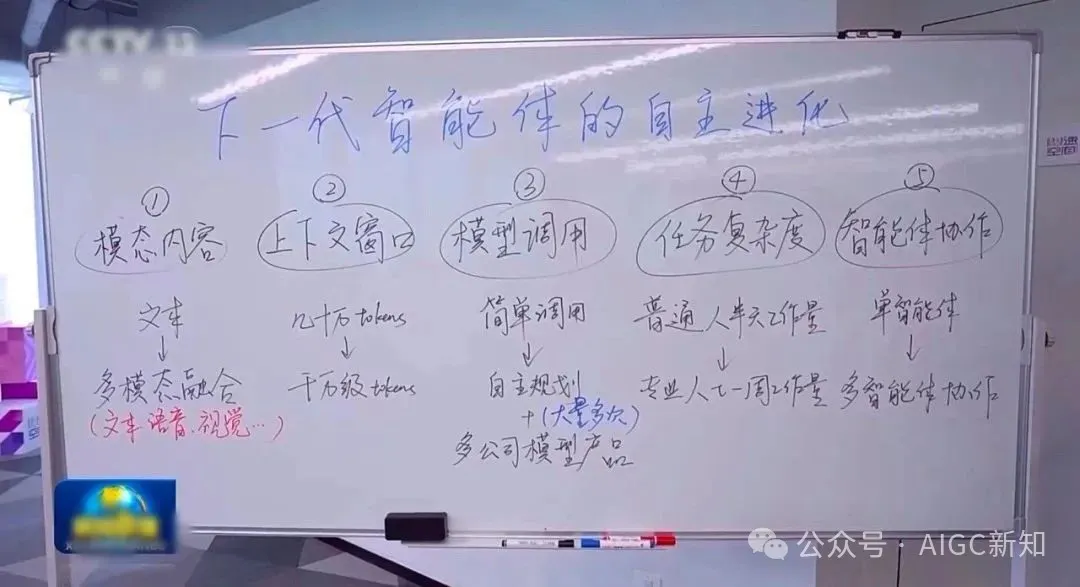 CCTV 13
下一代智能体的自主进化
① ② ③ ④ ⑤
模态内容 上下文窗口 模型调用 任务复杂度 智能体协作
文本 几十万tokens 简单调用 普通人半天工作量 单智能体
↓ ↓ ↓ ↓ ↓
多模态融合 千万级tokens 自主规划 专业人士一周工作量 多智能体协作
(文本.语音.视觉…) +(大量多次)
多公司模型产品
公众号 AIGC新知